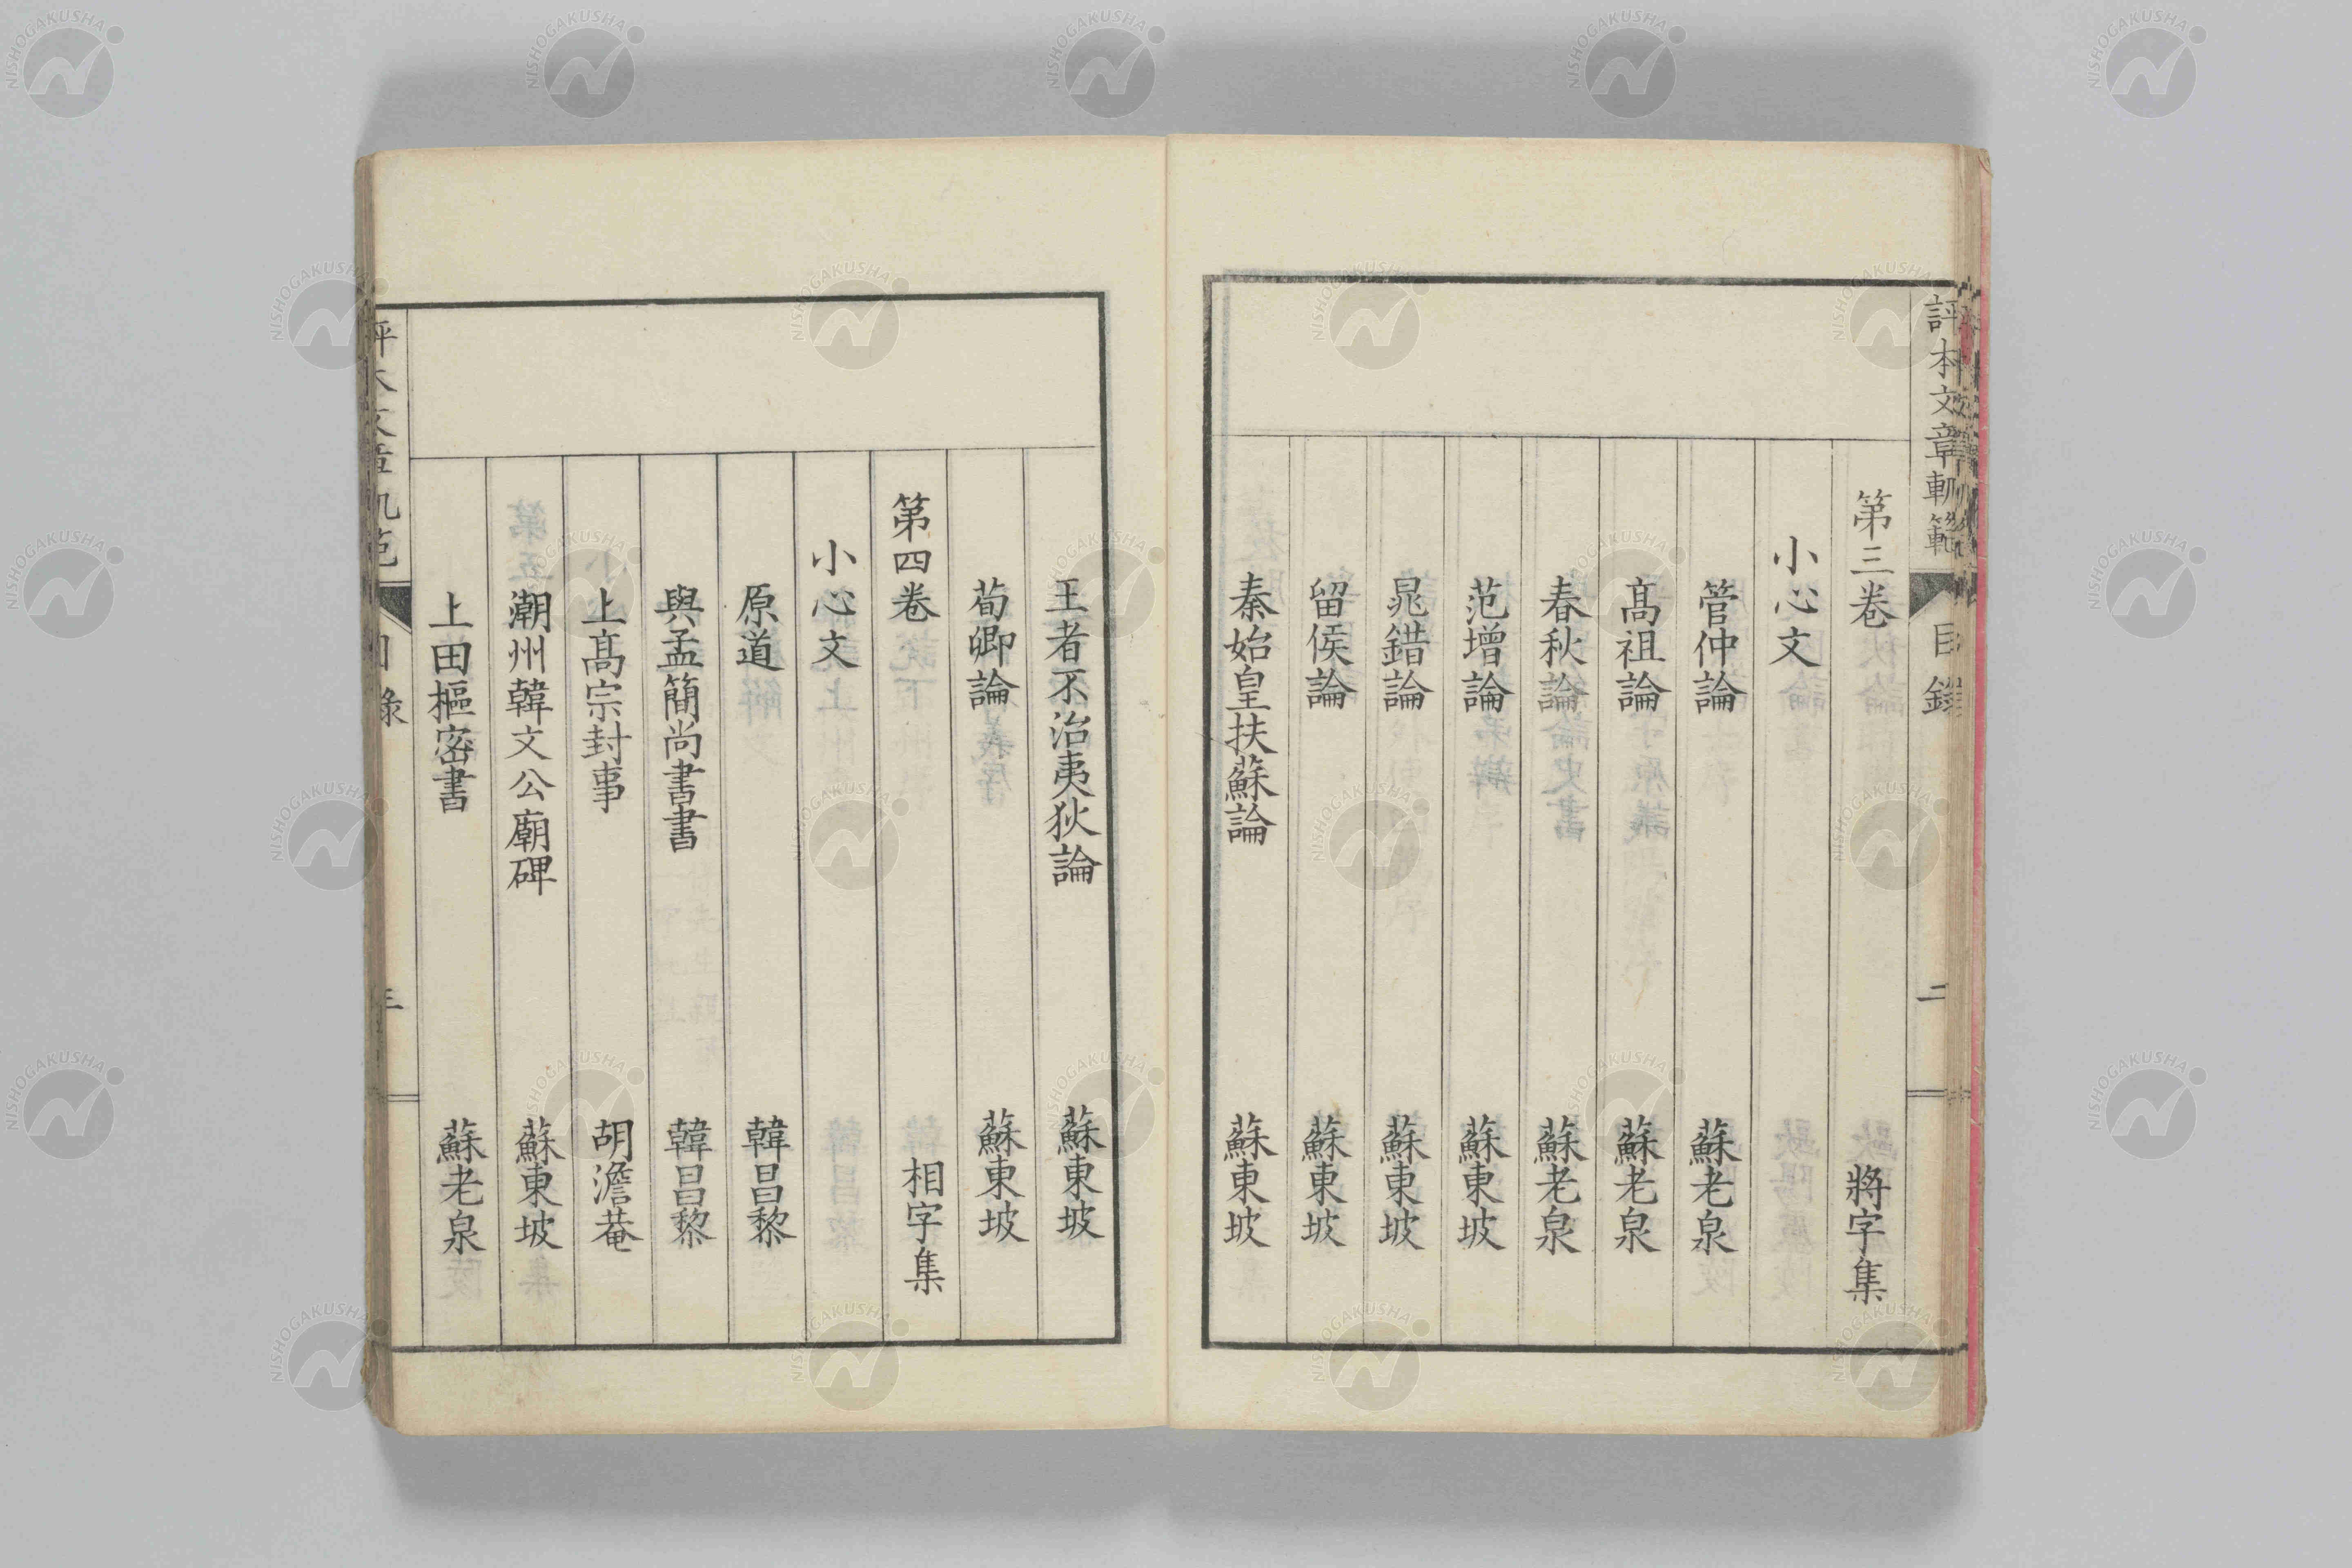 評本文章軌範
目錄
二
第三卷 將字集
小心文
管仲論 蘇老泉
高祖論 蘇老泉
春秋論 蘇老泉
范增論 蘇東坡
晁錯論 蘇東坡
留侯論 蘇東坡
秦始皇扶蘇論 蘇東坡
王者不治夷狄論 蘇東坡
荀卿論 蘇東坡
第四卷 相字集
小心文
原道 韓昌黎
與孟簡尚書書 韓昌黎
上高宗封事 胡澹菴
潮州韓文公廟碑 蘇東坡
上田樞密書 蘇老泉
NISHOGAKUSHA